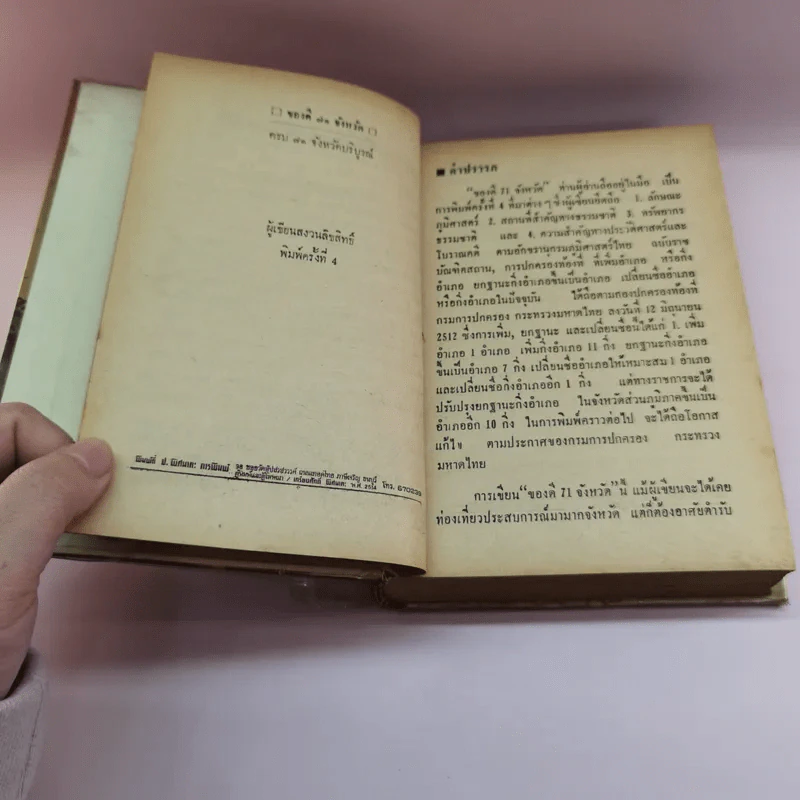 ของดี ๗๑ จังหวัด
ครบ ๗๑ จังหวัดบริบูรณ์
ผู้เขียนสงวนลิขสิทธิ์
พิมพ์ครั้งที่ 4
พิมพ์ที่ ป. พิศนาคะ การพิมพ์
โทร. 670239
■ คำปรารภ
“ของดี 71 จังหวัด” ท่านผู้อ่านถืออยู่ในมือ เป็น
การพิมพ์ครั้งที่ 4 ที่มาต่าง ๆ ซึ่งผู้เขียนยึดถือ 1. ลักษณะ
ภูมิศาสตร์ 2. สถานที่สำคัญทางธรรมชาติ 3. ทรัพยากร
ธรรมชาติ และ 4. ความสำคัญทางประวัติศาสตร์และ
โบราณคดี ตามอักขรานุกรมภูมิศาสตร์ไทย ฉบับราช
บัณฑิตสถาน, การปกครองท้องที่ ที่เพิ่มอำเภอ หรือกิ่ง
อำเภอ ยกฐานะกิ่งอำเภอขึ้นเป็นอำเภอ เปลี่ยนชื่ออำเภอ
หรือกิ่งอำเภอในปัจจุบัน ได้ถือตามกองปกครองท้องที่
กรมการปกครอง กระทรวงมหาดไทย ลงวันที่ 12 มิถุนายน
2512 ซึ่งการเพิ่ม, ยกฐานะ และเปลี่ยนชื่อนี้ได้แก่ 1. เพิ่ม
อำเภอ 1 อำเภอ เพิ่มกิ่งอำเภอ 11 กิ่ง ยกฐานะกิ่งอำเภอ
ขึ้นเป็นอำเภอ 7 กิ่ง เปลี่ยนชื่ออำเภอให้เหมาะสม 1 อำเภอ
และเปลี่ยนชื่อกิ่งอำเภออีก 1 กิ่ง แต่ทางราชการจะได้
ปรับปรุงยกฐานะกิ่งอำเภอ ในจังหวัดส่วนภูมิภาคขึ้นเป็น
อำเภออีก 10 กิ่ง ในการพิมพ์คราวต่อไป จะได้ถือโอกาส
แก้ไข ตามประกาศของกรมการปกครอง กระทรวง
มหาดไทย
การเขียน “ของดี 71 จังหวัด” นี้ แม้ผู้เขียนจะได้เคย
ท่องเที่ยวประสบการณ์มามากจังหวัด แต่ก็ต้องอาศัยตำรับ